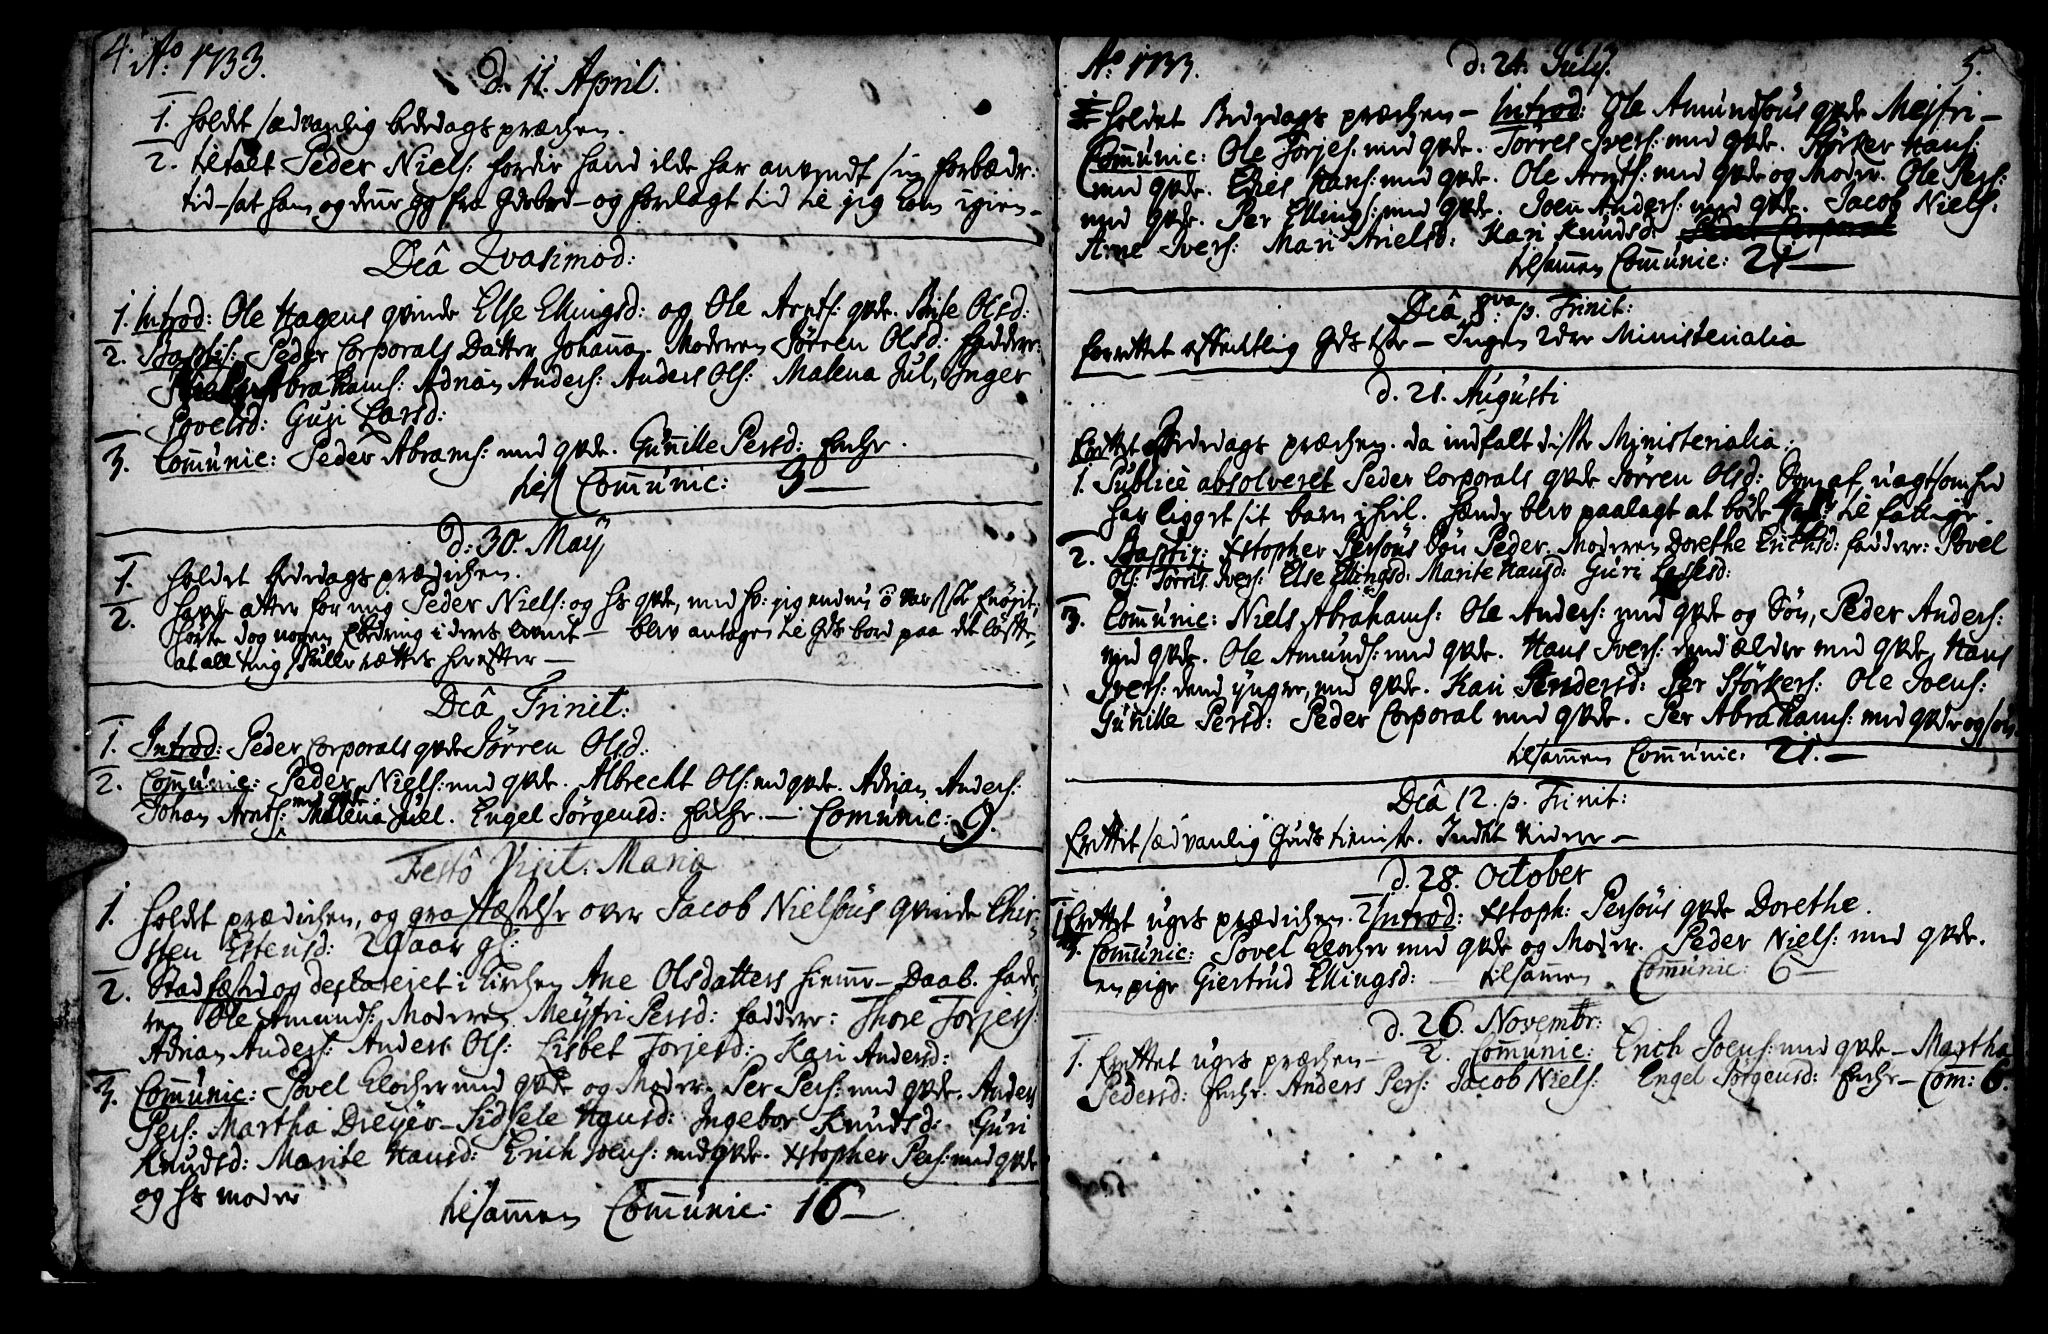 4. Ao 1733.
d. 11. April.
1. holdet sædvanlig bededags prædchen.
2. tiltalt Peder Niels: fordie hand ilde har anvendt sin forbædr:
tid – sat ham og denne gg fra Gds bord – og forelagt tid til sig
Dcâ Qvasimod:
1. Introd: Ole Hagens qvinde Else Ellingsd: og Ole Arnts: qvde. Olsd:
2. Baptis: Peder Corporals Datter Johanna. Moderen Sørren Olsd: Faddere:
Abrahams: Adrian Anders: Anders Ols: Malena Jul, Inger
Povelsd: Guri Larsd:
3. Comunic: Peder Abrams: med qvde. Gunille Persd: Enche.
Comunic: 3 –
d: 30. Maÿ
1. holdet bededags prædichen.
2. havde atter for mig Peder Niels: og hs qvde, med
hørte dog nogen i deris – blev antagen til Gds bord paa det løfte,
at all ting skulle rættes herefter –
Dcâ Trinit:
1. Introd: Peder Corporals qvde Sørren Olsd:
2. Comunic: Peder Niels: med qvde. Albrecht Ols: med qvde. Adrian Anders:
Johan Arnts: med qvde: Malena Juel. Engel Jørgensd: Enche. – Comunic: 9.
Festô Visit: Mariæ
1. holdet prædichen, og over Jacob Nielsøns qvinde Chir-
sten Estensd: 20 aar gl:
2. Stadfæsted og declareret i Kirchen Ane Olsdatters hieme – Daab. Fade-
ren Ole Amunds: Moderen Meÿfri Persd: faddere: Thore Torjers:
Adrian Anders: Anders Ols: Lisbet Torjersd: Kari Andersd:
3. Comunic: Povel Klocher med qvde og Moder. Per Pers: med qvde. Anders
Pers: Martha Dreÿer – Sidsele Hansd: Ingebor Knudsd: Guri
Knudsd: Marite Hansd: Erich Joens: med qvde. Xstopher Pers: med qvde
og hs moder
tilsamen Comunic: 16 –
Ao 1733. d: 24. Julÿ. 5.
1. holdet Bededags prædchen – Introd: Ole Amundsøns qvde Meÿfri –
Comunic: Ole Torjes: med qvde. Tørres Ivers: med qvde. Størker Hans:
med qvde. Elies Hans: med qvde. Ole Arnts: med qvde og Moder. Ole Pers:
med qvde. Per Ellings: med qvde. Joen Anders: med qvde. Jacob Niels:
Arne Ivers: Mari Arielsd: Kari Knudsd: Peder Corporal
tilsamen Comunic: 21 –
Dcâ 8va p. Trinit:
forrettet offentlig Gds tste – Ingen videre Ministerialia
d. 21. Augusti
frettet Bededags prædchen. da indfalt disse Ministerialia.
1. Publice absolveret Peder Corporals qvde Sørren Olsd: Som af uagtsomhed
har ligget sit barn ihiel. hende blev paalagt at bøde til fattige.
2. Baptiz: Xstopher Persøns Søn Peder. Moderen Dorethe Erichsd: faddere: Povel
Ols: Tørris Ivers: Else Ellingsd: Marite Hansd: Guri Lassesd:
3. Comunic: Niels Abrahams: Ole Anders: med qvde og Søn, Peder Anders:
med qvde. Ole Amunds: med qvde. Hans Ivers: dend ældre med qvde, Hans
Ivers: dend yngre, med qvde. Kari Andersd: Per Størkers: Ole Joens:
Gunille Persd: Peder Corporal med qvde. Per Abrahams: med qvde og søn
tilsamen Comunic: 21. –
Dcâ 12. p. Trinit:
frettet sædvanlig Guds tieniste. Intet videre –
d. 28. October
1. frettet uges prædichen. 2. Introd: Xstoph: Persøns qvde Dorethe.
3. Comunic: Povel Klocher med qvde og Moder. Peder Niels: med qvde.
en pige Giertrud Ellingsd: – tilsamen Comunic: 6 –
d. 26. Novembr:
1. frettet uges prædchen – 2. Comunic: Erich Joens: med qvde – Martha
Pedersd: Enche. Anders Pers: Jacob Niels: Engel Jørgensd: Enche – Com: 6.